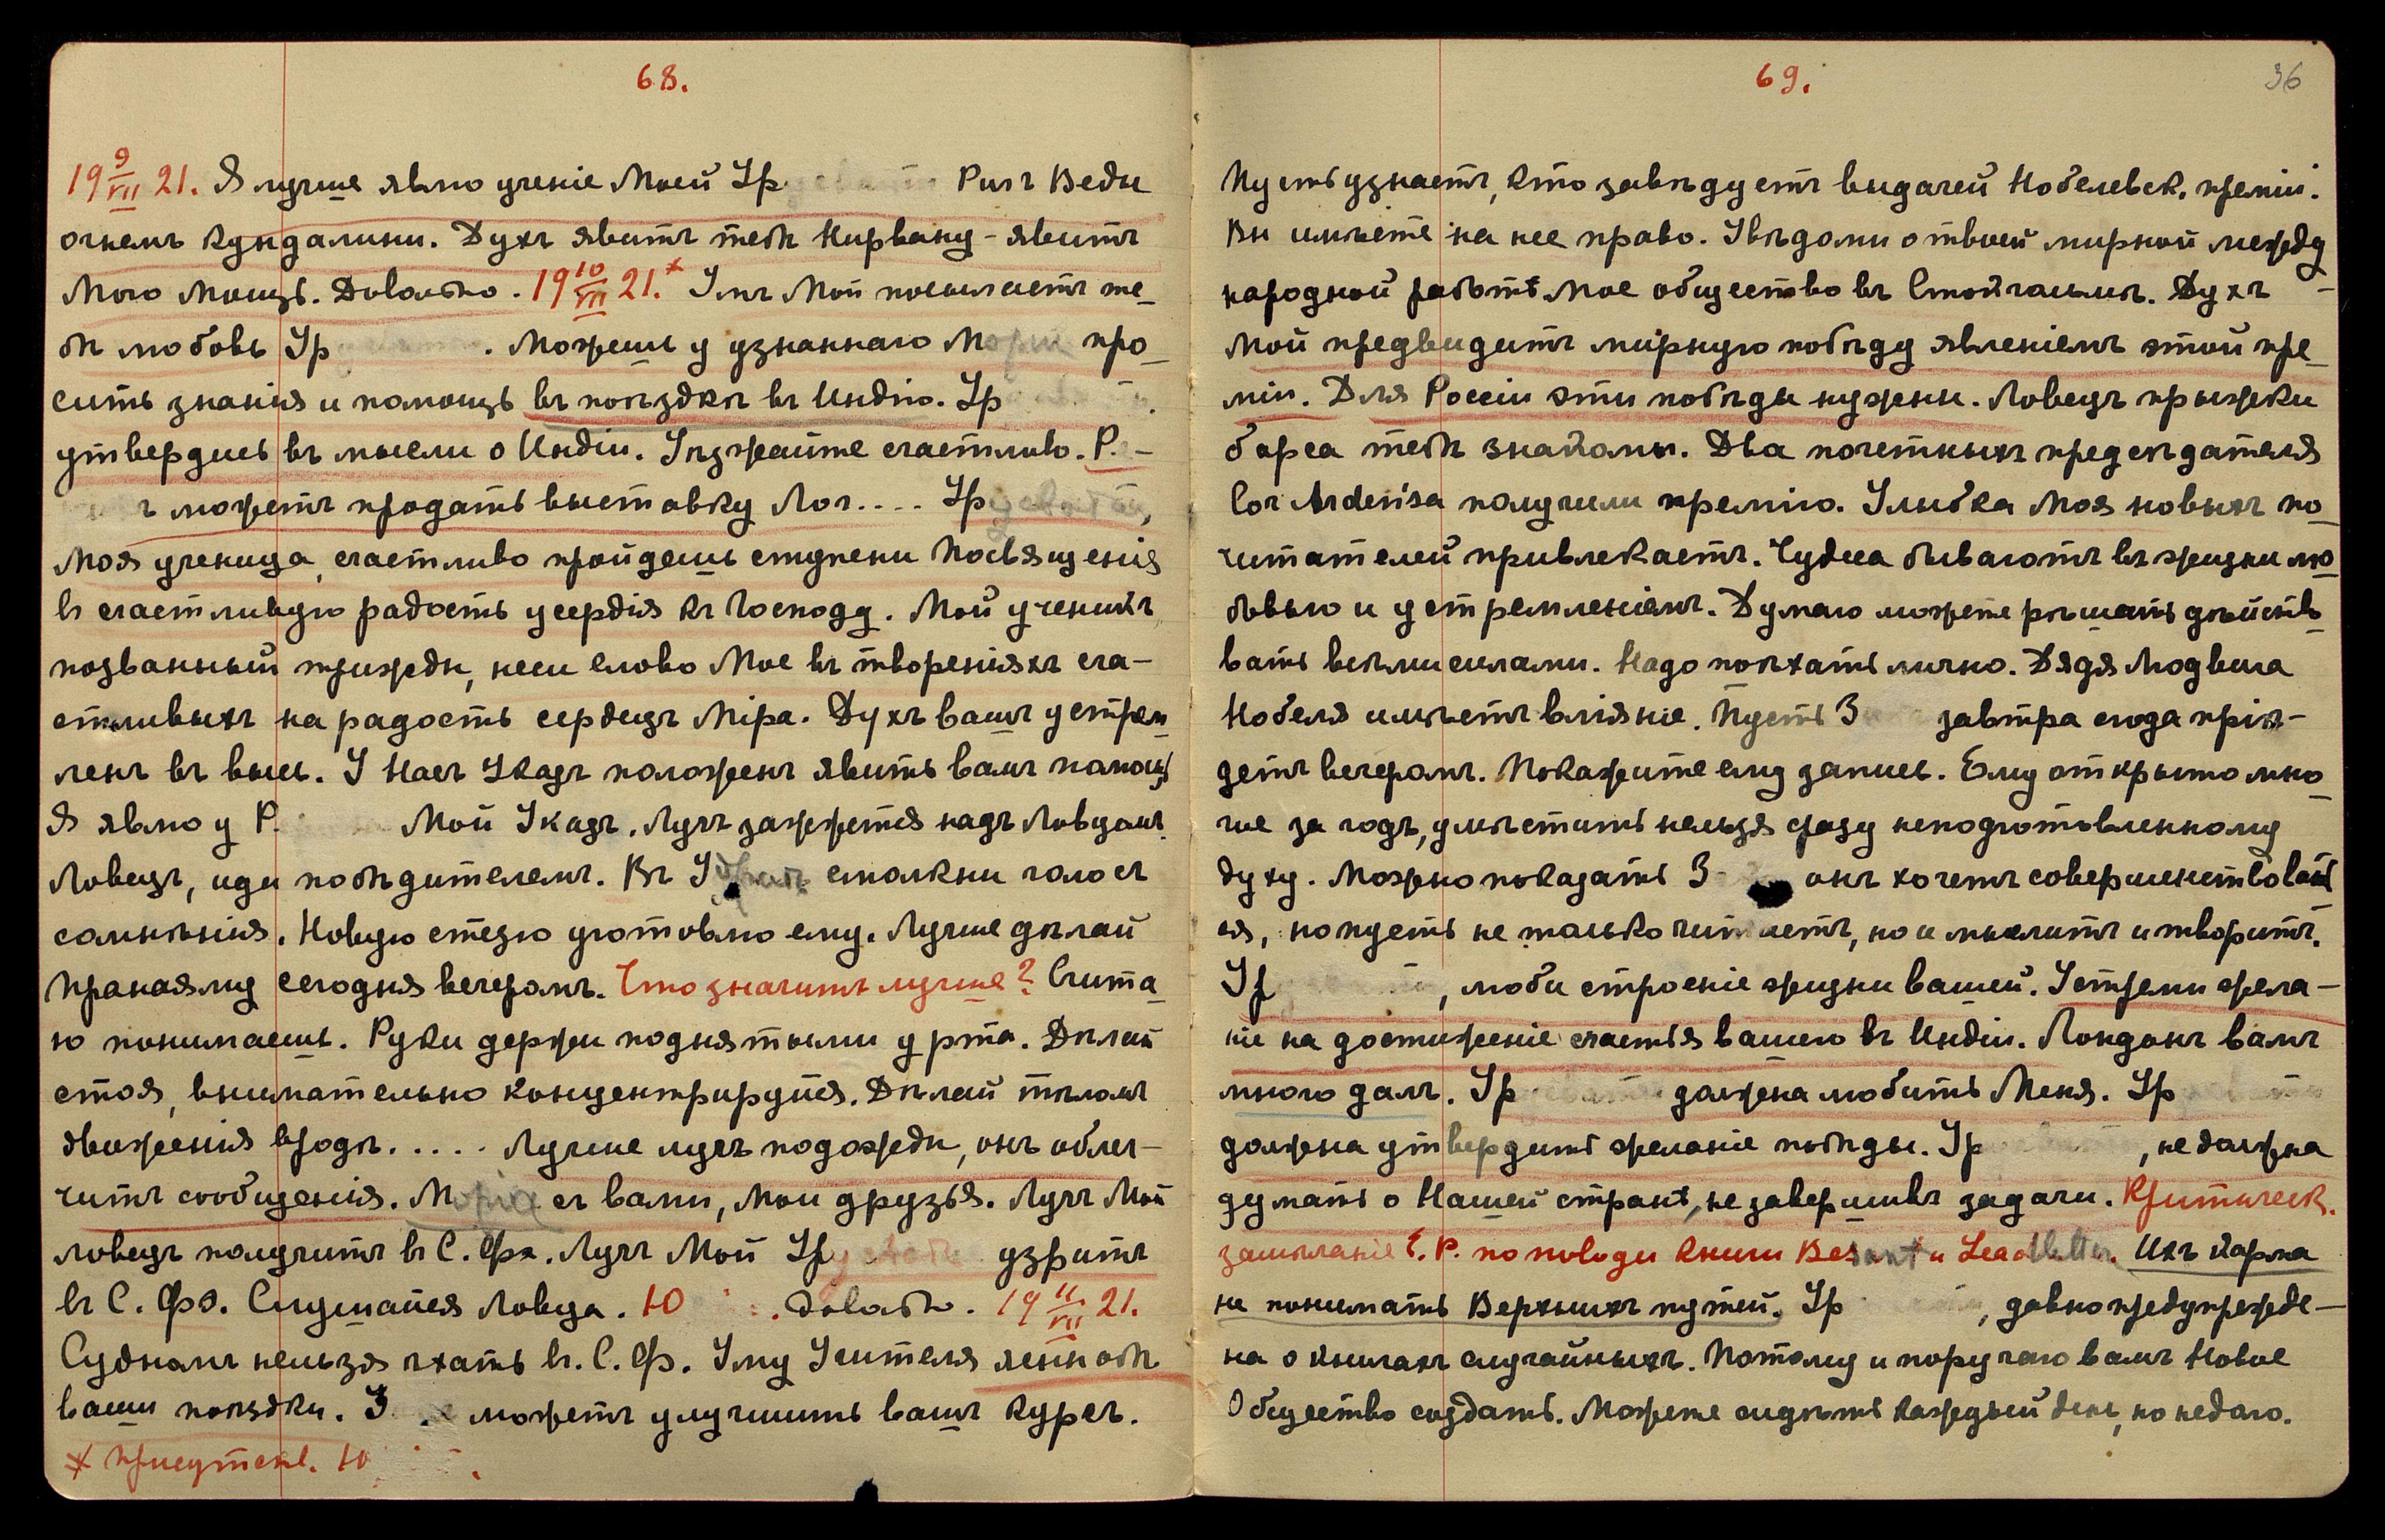 68.
19 9/VII 21. Я лучше явлю ученіе Моей Ур Риг Веды
огнемъ Кундалини. Духъ явитъ тебѣ Нирвану - явитъ
Мого Мощь. Довольно. 19 10/VII 21.* Умъ Мой посылаетъ те-
бѣ любовь Ур . Можешь у узнаннаго М про-
сить знанія и помощь въ поѣздкѣ въ Индію. Ур
утвердись въ мысли о Индіи. Уѣзжайте счастливо. Р. -
ъ можетъ продать выставку Лог.... Ур ,
Моя ученица, счастливо пройдешь ступени Посвященія
въ счастливую радость усердія къ Господу. Мой ученикъ,
позванный трижды, неси слово Мое въ твореніяхъ сча-
стливыхъ на радость сердецъ Міра. Духъ вашъ устрем
ленъ въ высь. У Насъ Указъ положенъ явить вамъ помощь
Я явлю у Р. Мой Указъ. Лучъ зажжется надъ Ловцомъ.
Ловецъ, иди побѣдителемъ. Въ У смолкни голосъ
сомнѣнія. Новую стезю уготовлю ему. Лучше дѣлай
Пранаяму сегодня вечеромъ. Что значитъ лучше? Счита-
ю понимаешь. Руки держи поднятыми у рта. Дѣлай
стоя, внимательно концентрируйся. Дѣлай тѣломъ
движенія вродѣ..... Лучше лучъ подожди, онъ облег-
читъ сообщенія. М съ вами, Мои друзья. Лучъ Мой
Ловецъ получитъ въ С. Фр. Лучъ Мой Ур узритъ
въ С. Фр. Слушайся Ловца. Ю . Довольно. 19 11/VII 21.
Суднамъ нельзя ѣхать въ. С. Ф. Уму Учителя ясны обѣ
ваши поѣздки. З можетъ улучшить вашъ курсъ.
* присутств. Ю .
69.
36
Пусть узнаетъ, кто завѣдуетъ выдачей Нобелевск. преміи.
Вы имѣете на нее право. Увѣдоми о твоей мирной между
народной работѣ Мое общество въ Стокгольмѣ. Духъ
Мой предвидитъ мирную побѣду явленіемъ этой пре-
міи. Для Россіи эти побѣды нужны. Ловецъ прыжки
барса тебѣ знакомы. Два почетныхъ предсѣдателя
Cor Ardens'a получили премію. Улыбка Моя новыхъ по-
читателей привлекаетъ. Чудеса бываютъ въ жизни лю-
бовью и устремленіемъ. Думаю можете рѣшать дѣйство-
вать всѣми силами. Надо поѣхать лично. Дядя Людвига
Нобеля имѣетъ вліяніе. Пусть З завтра сюда пріѣ-
детъ вечеромъ. Покажите ему запись. Ему открыто мно-
гое за годъ, умѣстить нельзя сразу неподготовленному
духу. Можно показать З онъ хочетъ совершенствовать
ся, но пусть не только читаетъ, но и мыслитъ и творитъ.
Ур , люби строеніе жизни вашей. Устреми жела-
ніе на достиженіе счастья вашего въ Индіи. Лондонъ вамъ
много далъ. Ур должна любить Меня. Ур
должна утвердить желаніе побѣды. Ур , не должна
думать о Нашей странѣ, не завершивъ задачи. Критическ.
замѣчаніе Е. Р. по поводу книги Besant и Leadbetter. Ихъ карма
не понимать Верхнихъ путей. Ур , давно предупрежде-
на о книгахъ случайныхъ. Потому и поручаю вамъ Новое
Общество создать. Можете сидѣть каждый день, но недолго.